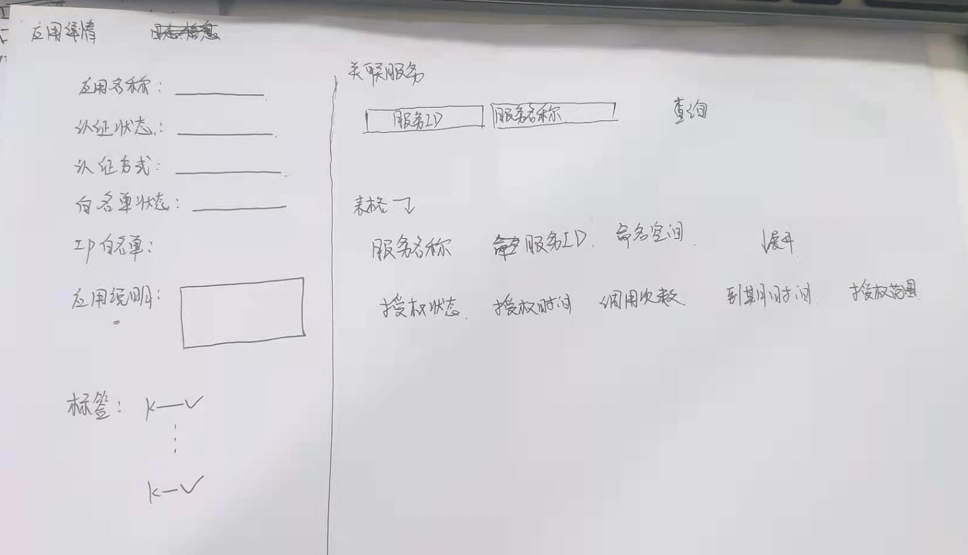 应用详情
应用名称：
认证状态：
认证方式：
白名单状态：
IP白名单：
应用说明：
标签： K—V
K—V
关联服务
服务ID 服务名称 查询
表格
服务名称 服务ID 命名空间 展开
授权状态 授权时间 调用次数 到期时间 授权范围